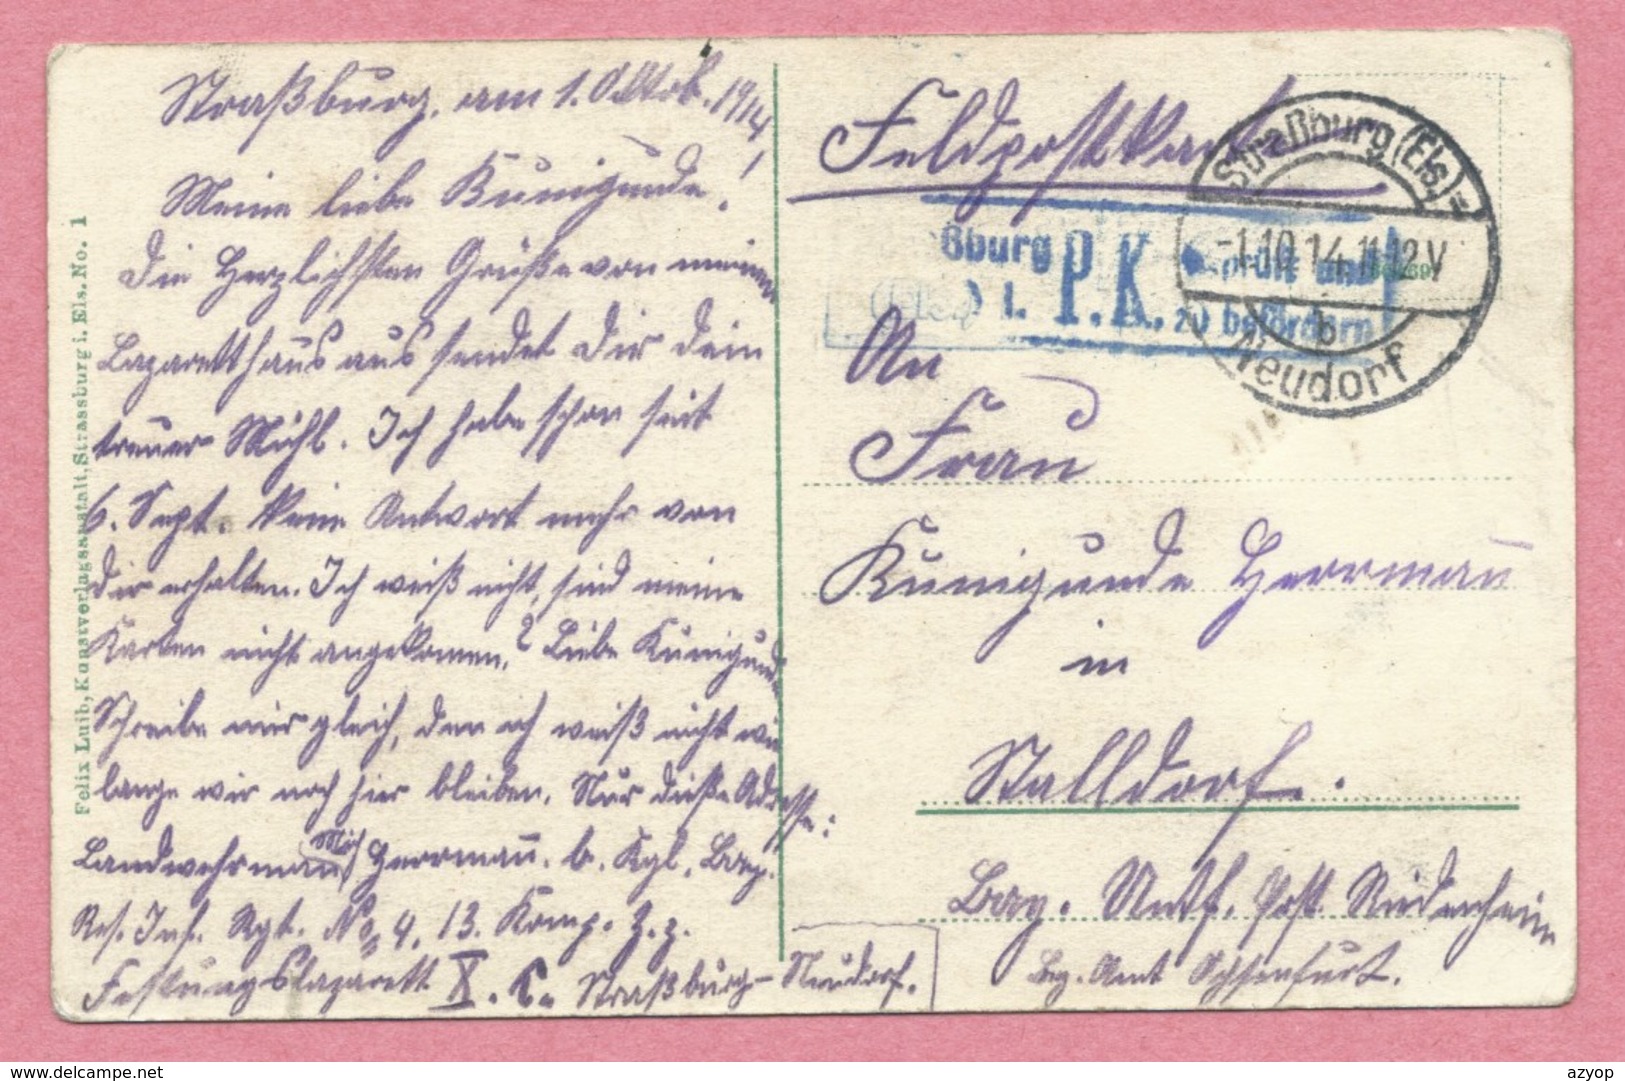 Straßburg, am 1. Oktob. 1914
Meine liebe Kunigunde!
Die Herzlichsten Grüße von meinem
Lazaretthaus aus sendet Dir dein
treuer Michl. Ich habe schon seit
6. Sept. keine Antwort mehr von
dir erhalten. Ich weiß nicht, sind meine
Karten nicht angekomen? Liebe Kunigunde
Schreibe mir gleich, den ich weiß nicht wie
lange wir noch hier bleiben. Nur dieße Adresse:
Landwehrman Mich Herrmañ. b. Kgl. Bay.
Res. Inf. Rgt. No 4, 13. Komp. z. z.
Festungslazarett X. C. Straßburg-Neudorf.
Felix Luib, Kunstverlagsanstalt, Strassburg i. Els. No. 1
Feldpostkart
Straßburg (Els.)=
-1.10.14.11-12V
b
Neudorf
ßburg
(Els.) 1.
P.K.
und
zu befördern
An
Frau
Kunigunde Herrmañ
in
Stalldorf.
Bay. Untf. Post Riedenheim
Bez. Amt Ochsenfurt.
Delcampe.net
azyop